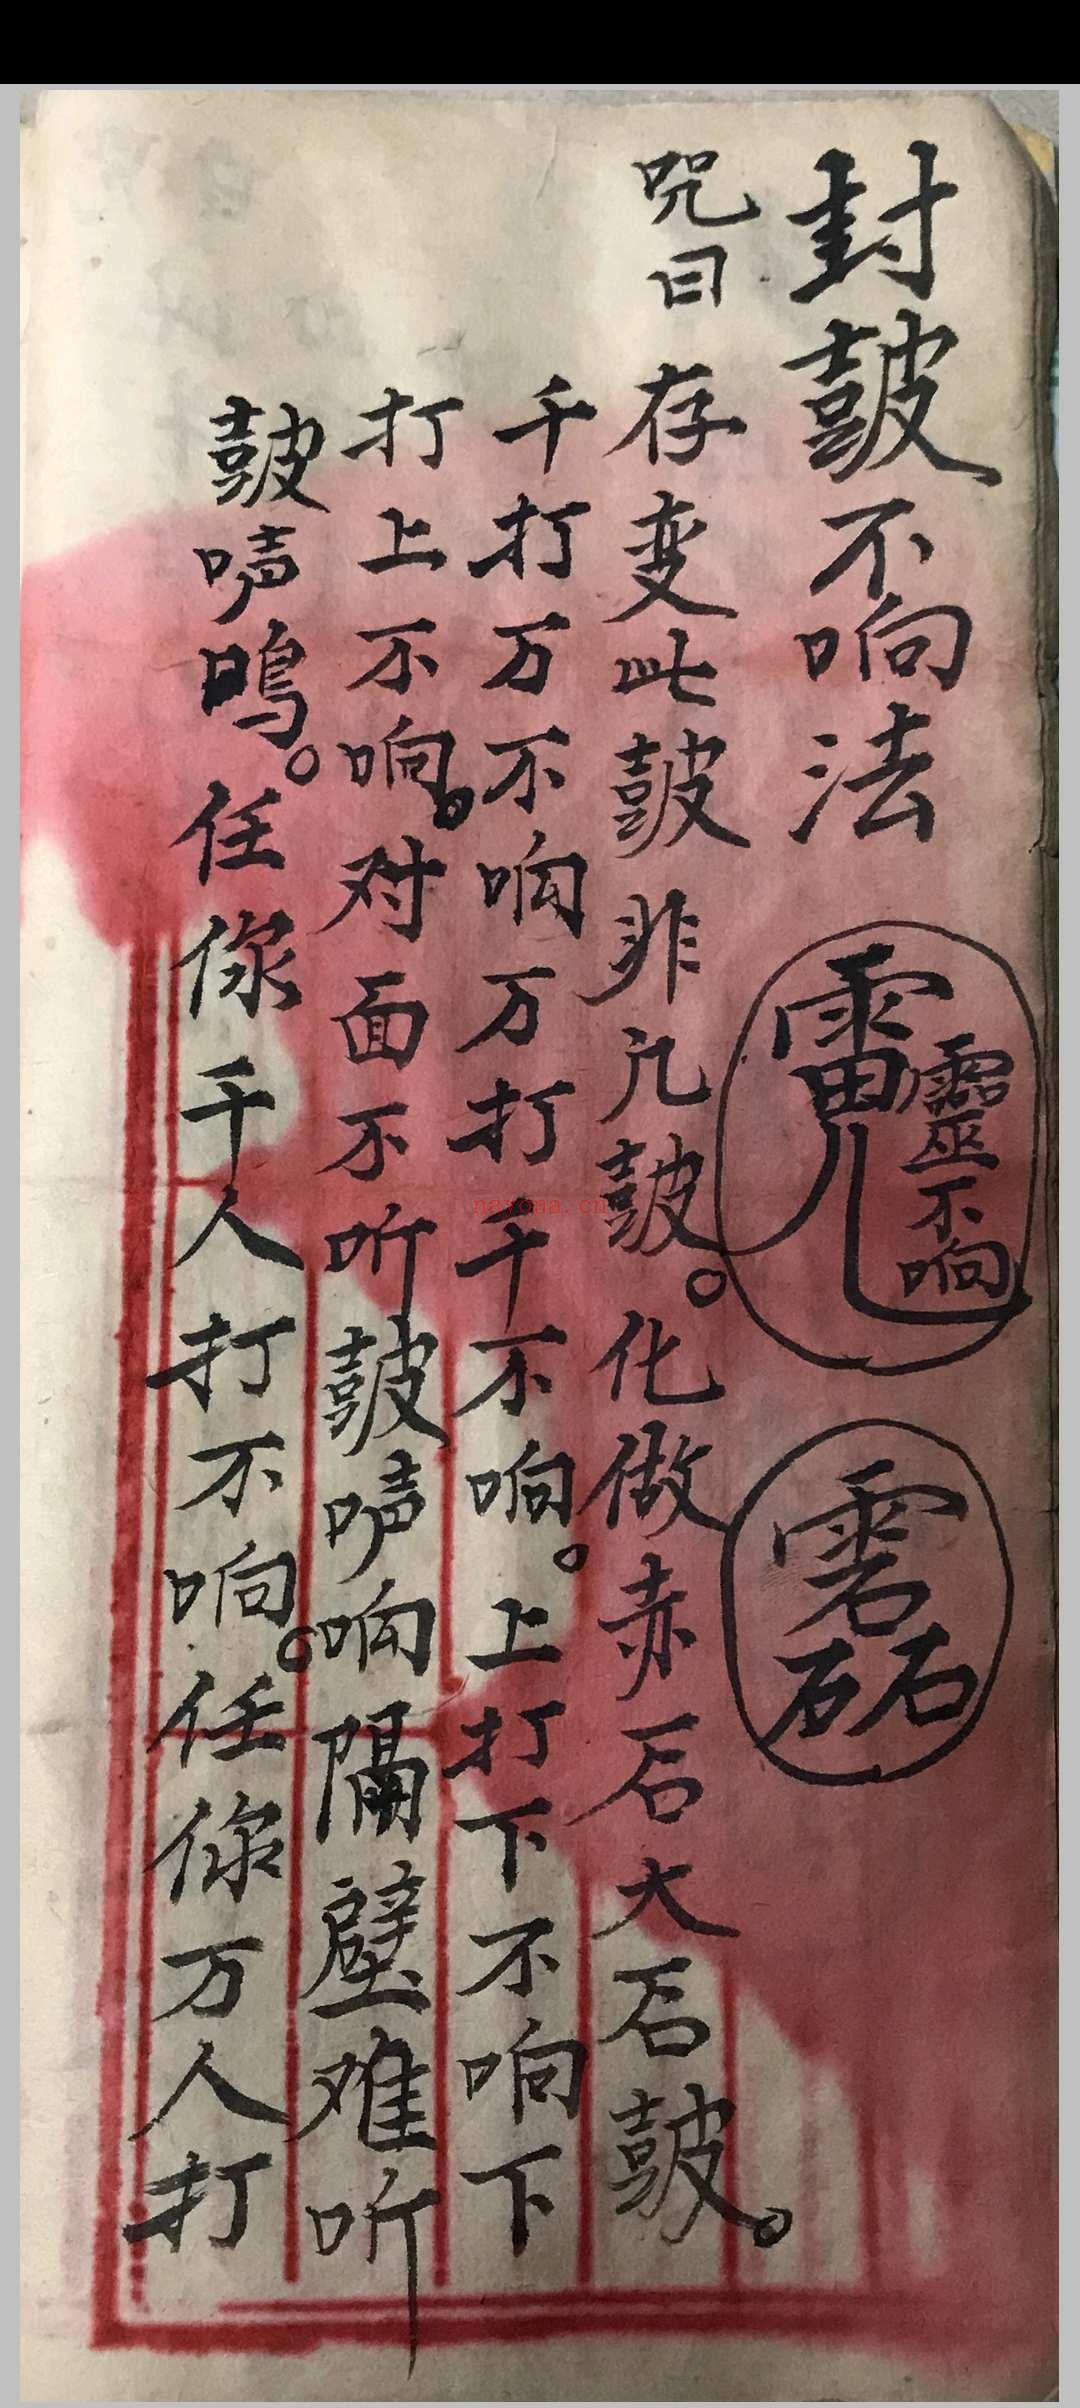 封皷不响法
靈不响
咒曰 存变此皷非凢皷。化做赤石大石皷。
千打万不响万打千不响。上打下不响下
打上不响。对面不听皷唭响隔壁难听
皷唭鸣。任你千人打不响。任你万人打
nayona.cn